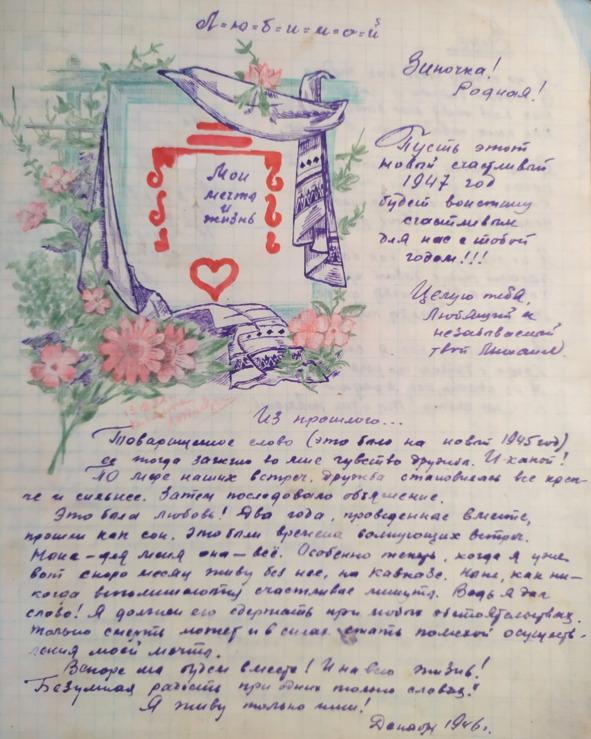 Л=ю=б=и=м=о=й
Зиночка!
Родная!
Пусть этот
новый счастливый
1947 год
будет воистину
счастливым
для нас с тобой
годом!!!
Целую тебя,
Любящий и
незабываемой
твой
Мои
мечта
и
жизнь
Из прошлого...
Товарищеское слово (это было на новый 1945 год)
ее тогда зажгло во мне чувство дружбы. И какой!
По мере наших встреч, дружба становилась все креп-
че и сильнее. Затем последовало объяснение.
Это была любовь! Два года, проведенные вместе,
прошли как сон. Это были времена волнующих встреч.
для меня она — всё. Особенно теперь, когда я уже
вот скоро месяц живу без нее, на Кавказе. как ни-
когда вспоминаются счастливые минуты. Ведь я дал
слово! Я должен его сдержать при любых обстоятельствах.
Только смерть может и в силах стать помехой осуществ-
ления моей мечты.
Вскоре мы будем вместе! И на всю жизнь!
Безумная радость при одних только словах!
Я живу только ими!
Декабрь 1946г.